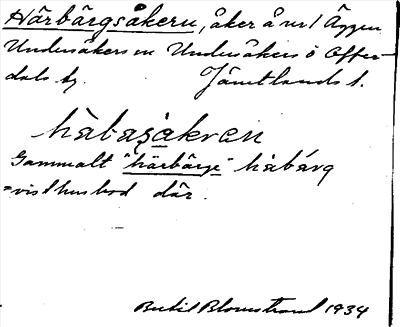 Härbärgsåkern, åker å nr 1 Äggen
Undersåkers sn Undersåkers o Offer-
dals tg. Jämtlands l.
hàbasàkren
Gammalt "härbärge" hàbárg
=visthusbod där.
Bertil Blomstrand 1934